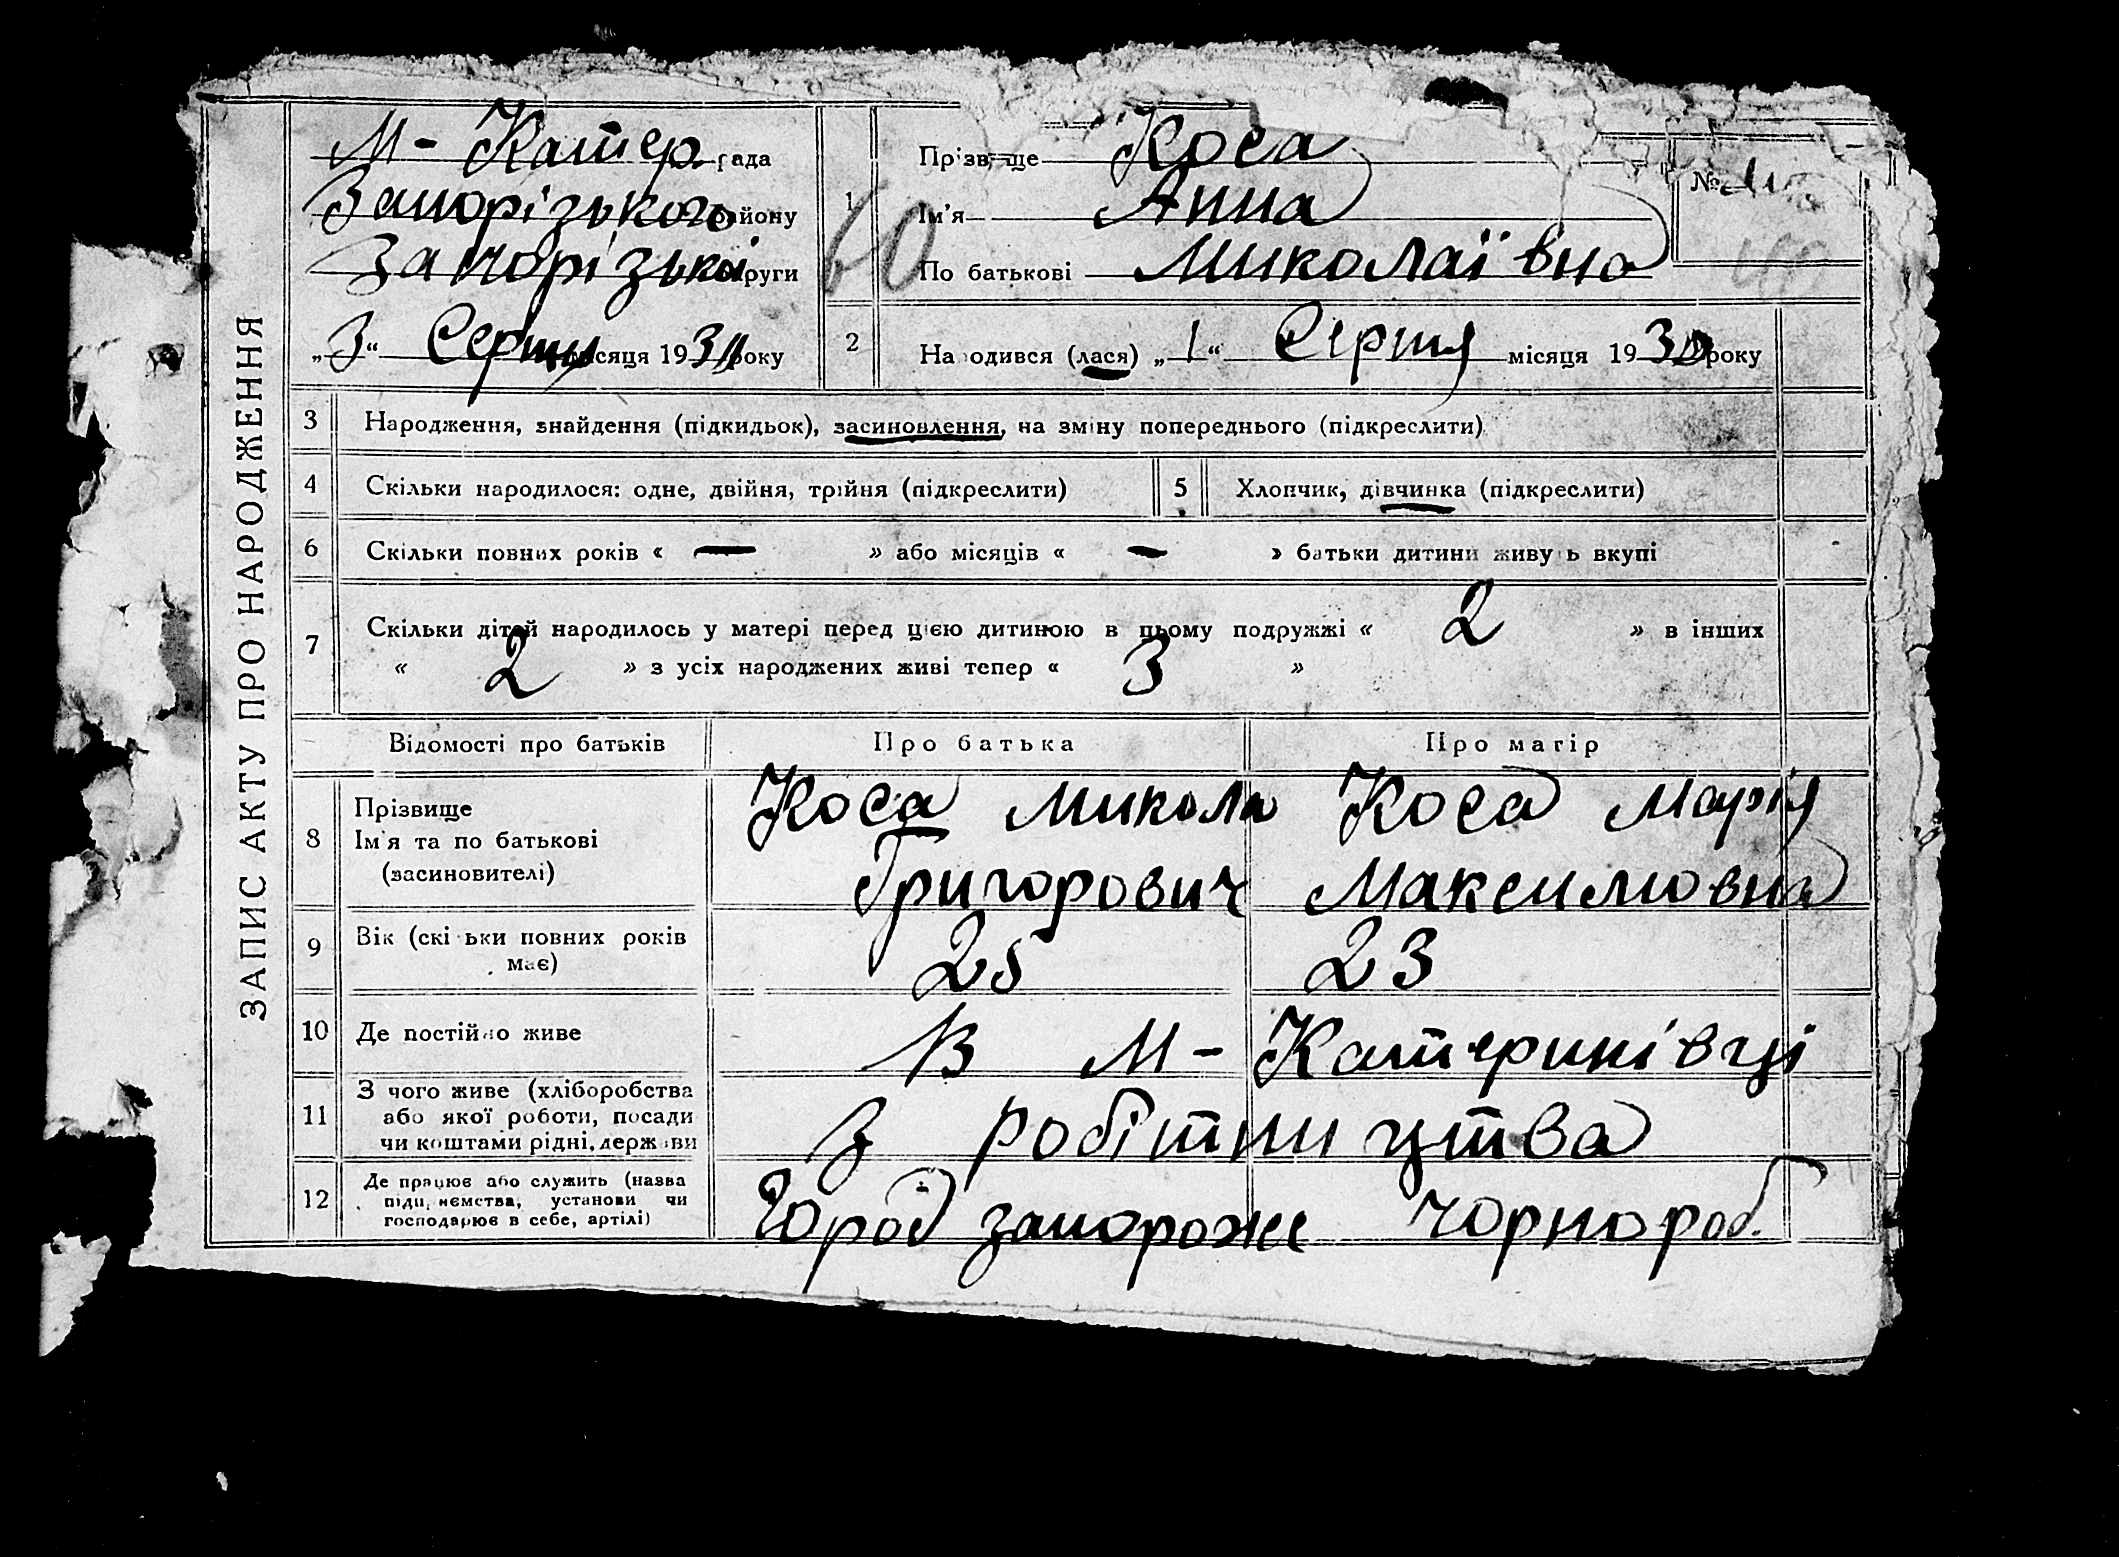 ЗАПИС АКТУ ПРО НАРОДЖЕННЯ
М-Катер рада
Запорізького району
Запорізької округи
„3“ Серпня місяця 1930 року
60
1 Прізвище Коса
Ім'я Анна
По батькові Миколаївна
№
2 Народився (лася) „1“ Серпня місяця 1930 року
3 Народження, знайдення (підкидьок), засиновлення, на зміну попереднього (підкреслити)
4 Скільки народилося: одне, двійня, трійня (підкреслити) 5 Хлопчик, дівчинка (підкреслити)
6 Скільки повних років « — » або місяців « — » батьки дитини живуть вкупі
7 Скільки дітей народилось у матері перед цією дитиною в цьому подружжі « 2 » в інших
« 2 » з усіх народжених живі тепер « 3 »
Відомості про батьків Про батька Про матір
8 Прізвище
Ім'я та по батькові
(засиновителі)
Коса Микола
Григорович
Коса Марія
Максимовна
9 Вік (скільки повних років
має)
25 23
10 Де постійно живе В М-Катеринівці
11 З чого живе (хліборобства
або якої роботи, посади
чи коштами рідні, держави
З робітництва
12 Де працює або служить (назва
підприємства, установи чи
господарює в себе, артілі)
Город запорожє чорнороб.